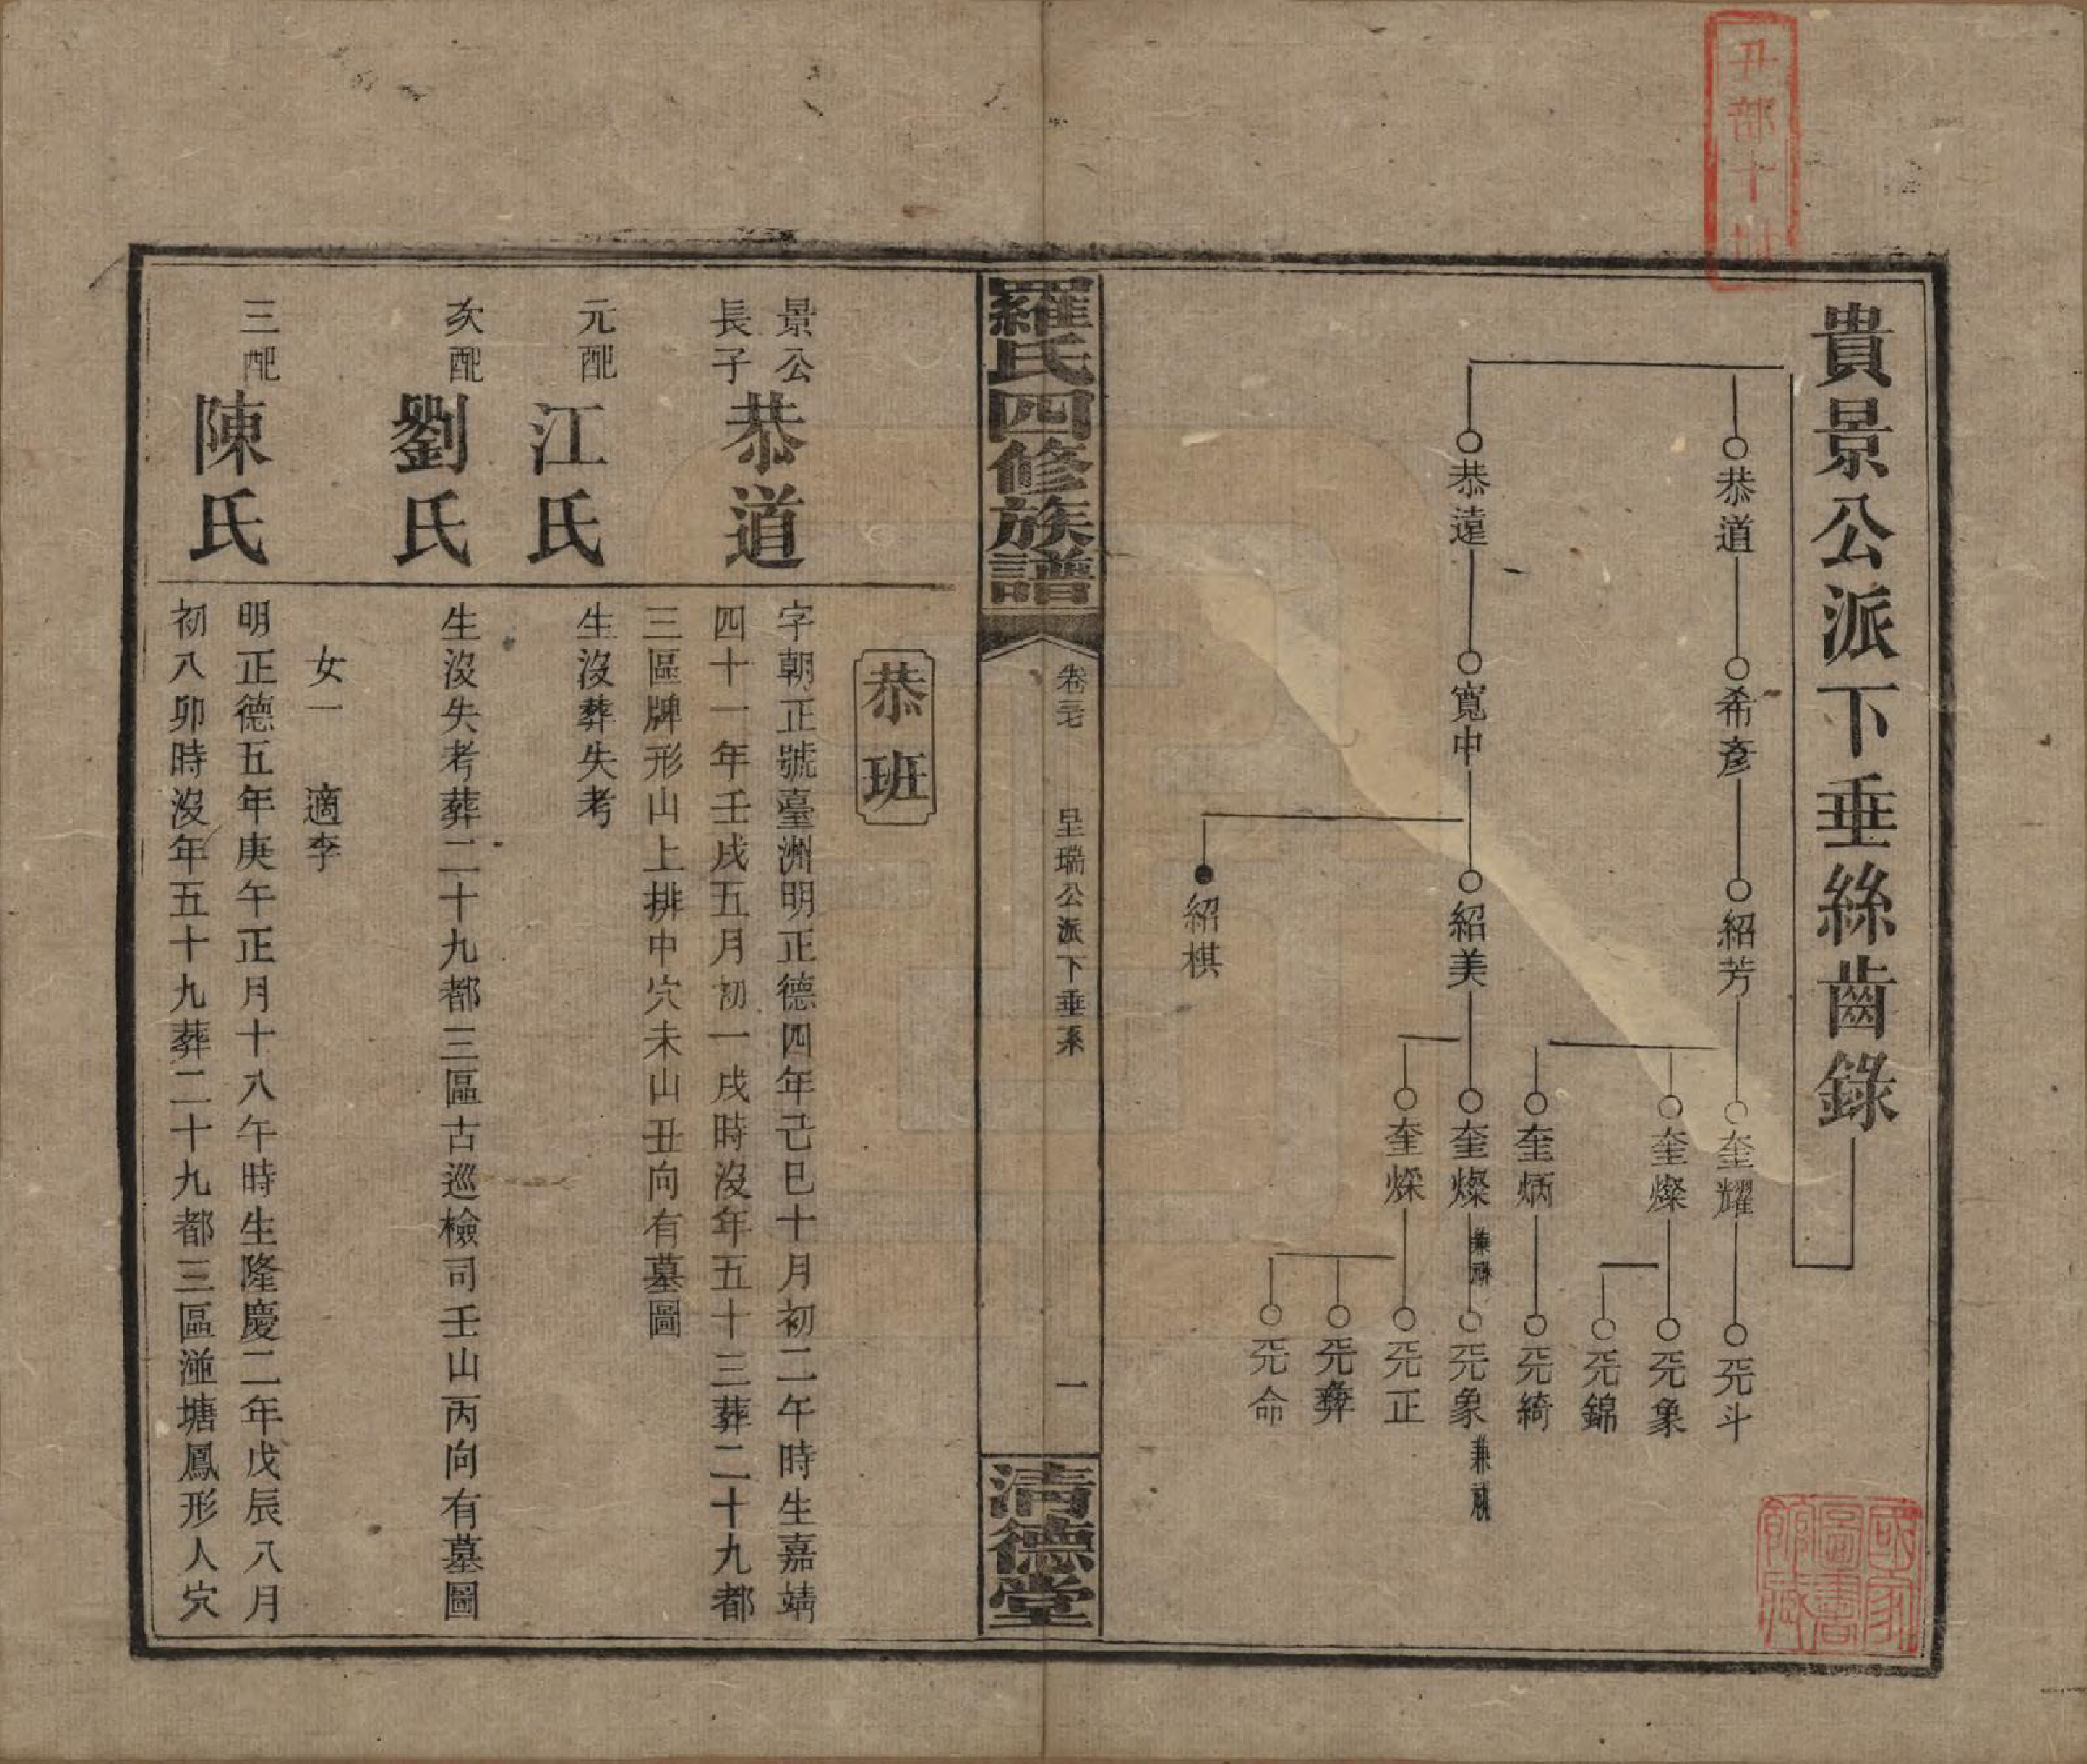 丑部十
貴景公派下垂絲齒錄
恭道
希彥
紹芳
奎耀
旡斗
奎燦
旡象
旡錦
奎炳
旡綺
恭遠
寬中
紹美
奎燦
兼祧
旡象
兼祧
奎煣
旡正
旡彝
旡命
紹棋
國家圖書館藏
羅氏四修族譜
卷三七
呈瑞公派下垂系
一
清德堂
恭班
景公長子
恭道
字朝正號臺洲明正德四年己巳十月初二午時生嘉靖
四十一年壬戌五月初一戌時沒年五十三葬二十九都
三區牌形山上排中穴未山丑向有墓圖
元配
江氏
生沒葬失考
次配
劉氏
生沒失考葬二十九都三區古巡檢司壬山丙向有墓圖
女一 適李
三配
陳氏
明正德五年庚午正月十八午時生隆慶二年戊辰八月
初八卯時沒年五十九葬二十九都三區湴塘鳳形人穴